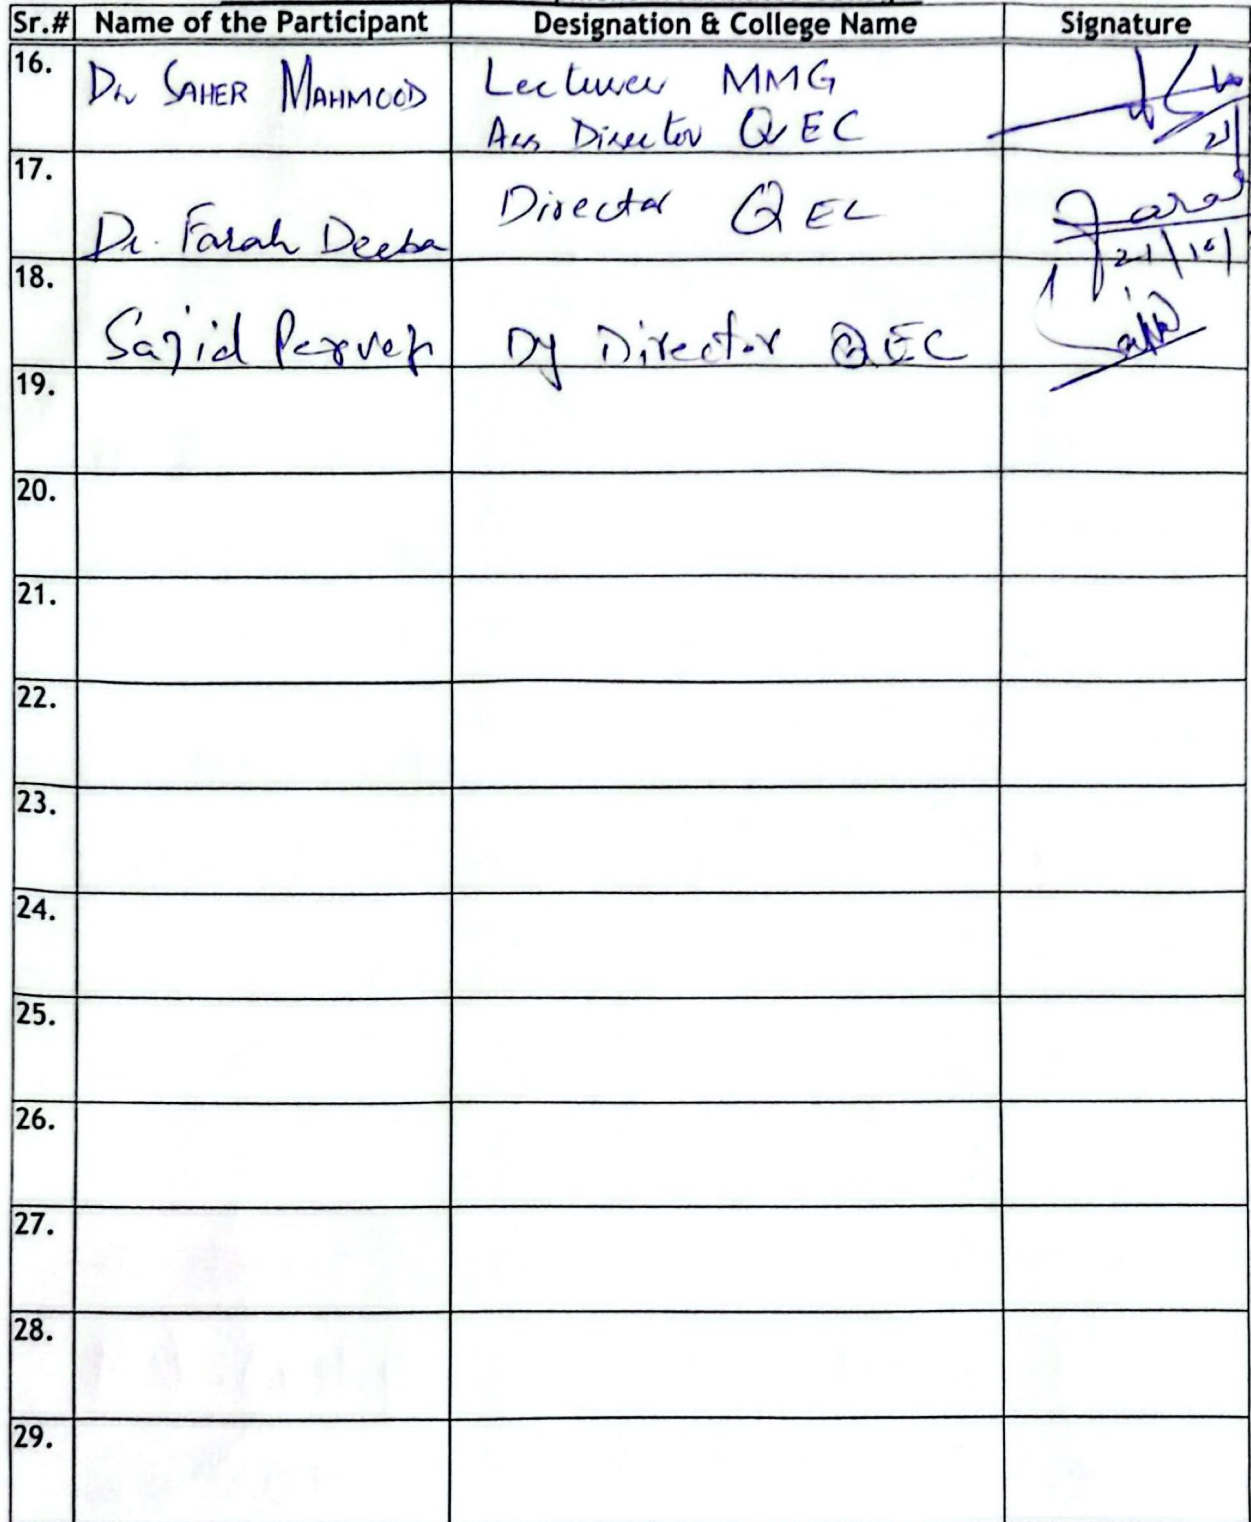 Sr.# Name of the Participant Designation & College Name Signature
16. Dr SAHER MAHMOOD Lecturer MMG
Ass Director QEC
21/
17. Director QEC
Dr. Farah Deeba Farah
21/10/
18.
Sajid Pervez Dy Director QEC Sajid
19.
20.
21.
22.
23.
24.
25.
26.
27.
28.
29.